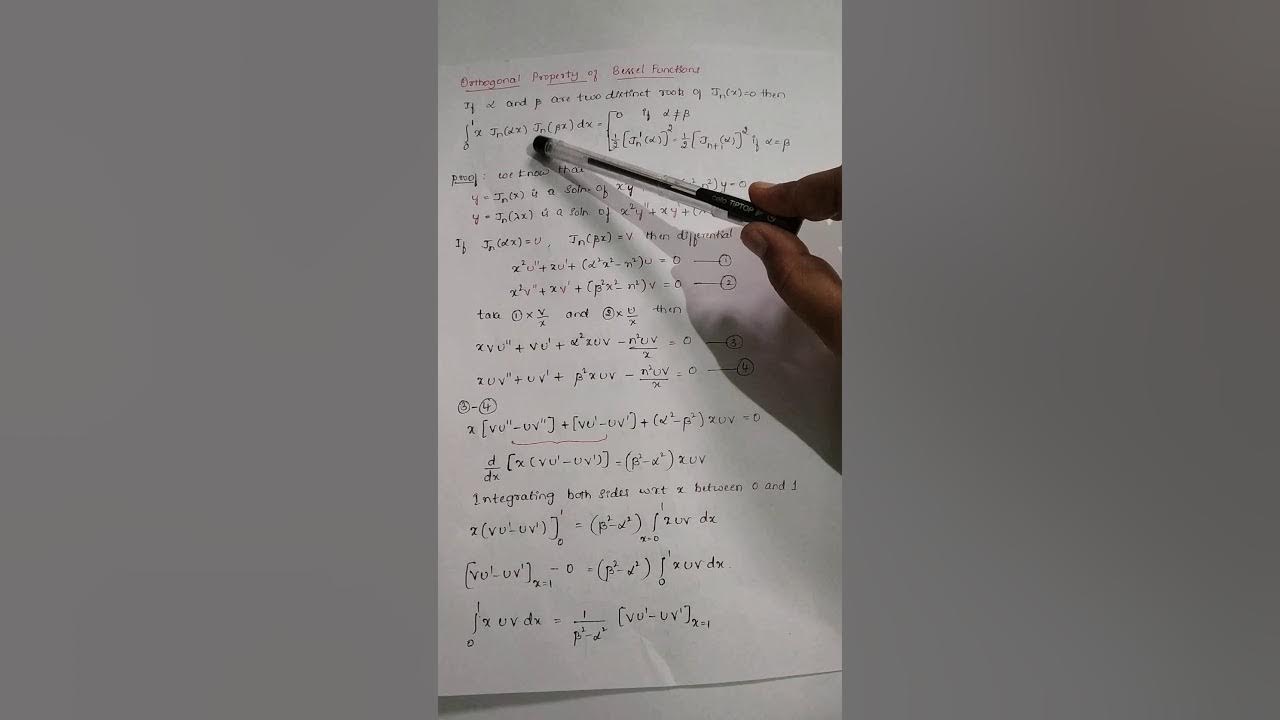 Orthogonal Property of Bessel Functions
If α and β are two distinct roots of Jn(x)=0 then
∫₀¹ x Jn(αx) Jn(βx) dx = { 0 if α≠β
½[Jn'(α)]² = ½[Jn+1(α)]² if α=β
proof: we know that
y = Jn(x) is a soln. of x y n²)y=0
y = Jn(λx) is a soln. of x²y''+xy'+(
If Jn(αx)=U, Jn(βx)=V then differential
x²U''+xU'+(α²x²-n²)U = 0 —①
x²V''+xV'+(β²x²-n²)V = 0 —②
take ①×V/x and ②×U/x then
xVU''+VU'+α²xUV - n²UV/x = 0 —③
xUV''+UV'+β²xUV - n²UV/x = 0 —④
③-④
x[VU''-UV'']+[VU'-UV']+(α²-β²)xUV=0
d/dx [x(VU'-UV')]=(β²-α²)xUV
Integrating both sides wrt x between 0 and 1
x(VU'-UV')]₀¹ = (β²-α²) ∫ₓ₌₀¹ xUV dx
[VU'-UV']ₓ₌₁ - 0 = (β²-α²) ∫₀¹ xUV dx.
∫₀¹ x UV dx = 1/(β²-α²) [VU'-UV']ₓ₌₁
cello TIPTOP